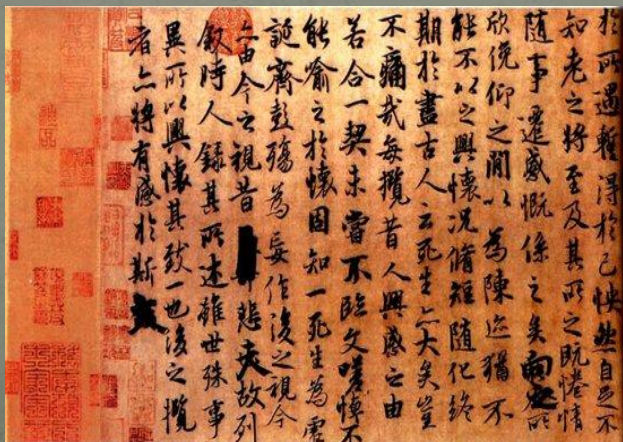 於所遇暫得於己怏然自足不
知老之將至及其所之既惓情
随事遷感慨係之矣向之所
欣俛仰之閒以為陳迹猶不
能不以之興懷况脩短随化終
期於盡古人云死生亦大矣豈
不痛哉每攬昔人興感之由
若合一契未嘗不臨文嗟悼不
能喻之於懷固知一死生為虛
誕齊彭殤為妄作後之視今
亦由今之視昔悲夫故列
敘時人錄其所述雖世殊事
異所以興懷其致一也後之攬
者亦將有感於斯文